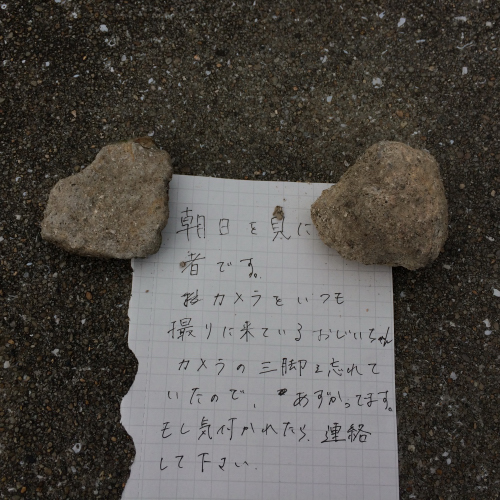 朝日を見に
者です。
カメラをいつも
撮りに来ているおじいちゃん
カメラの三脚を忘れて
いたので、あずかってます。
もし気付かれたら、連絡
して下さい.